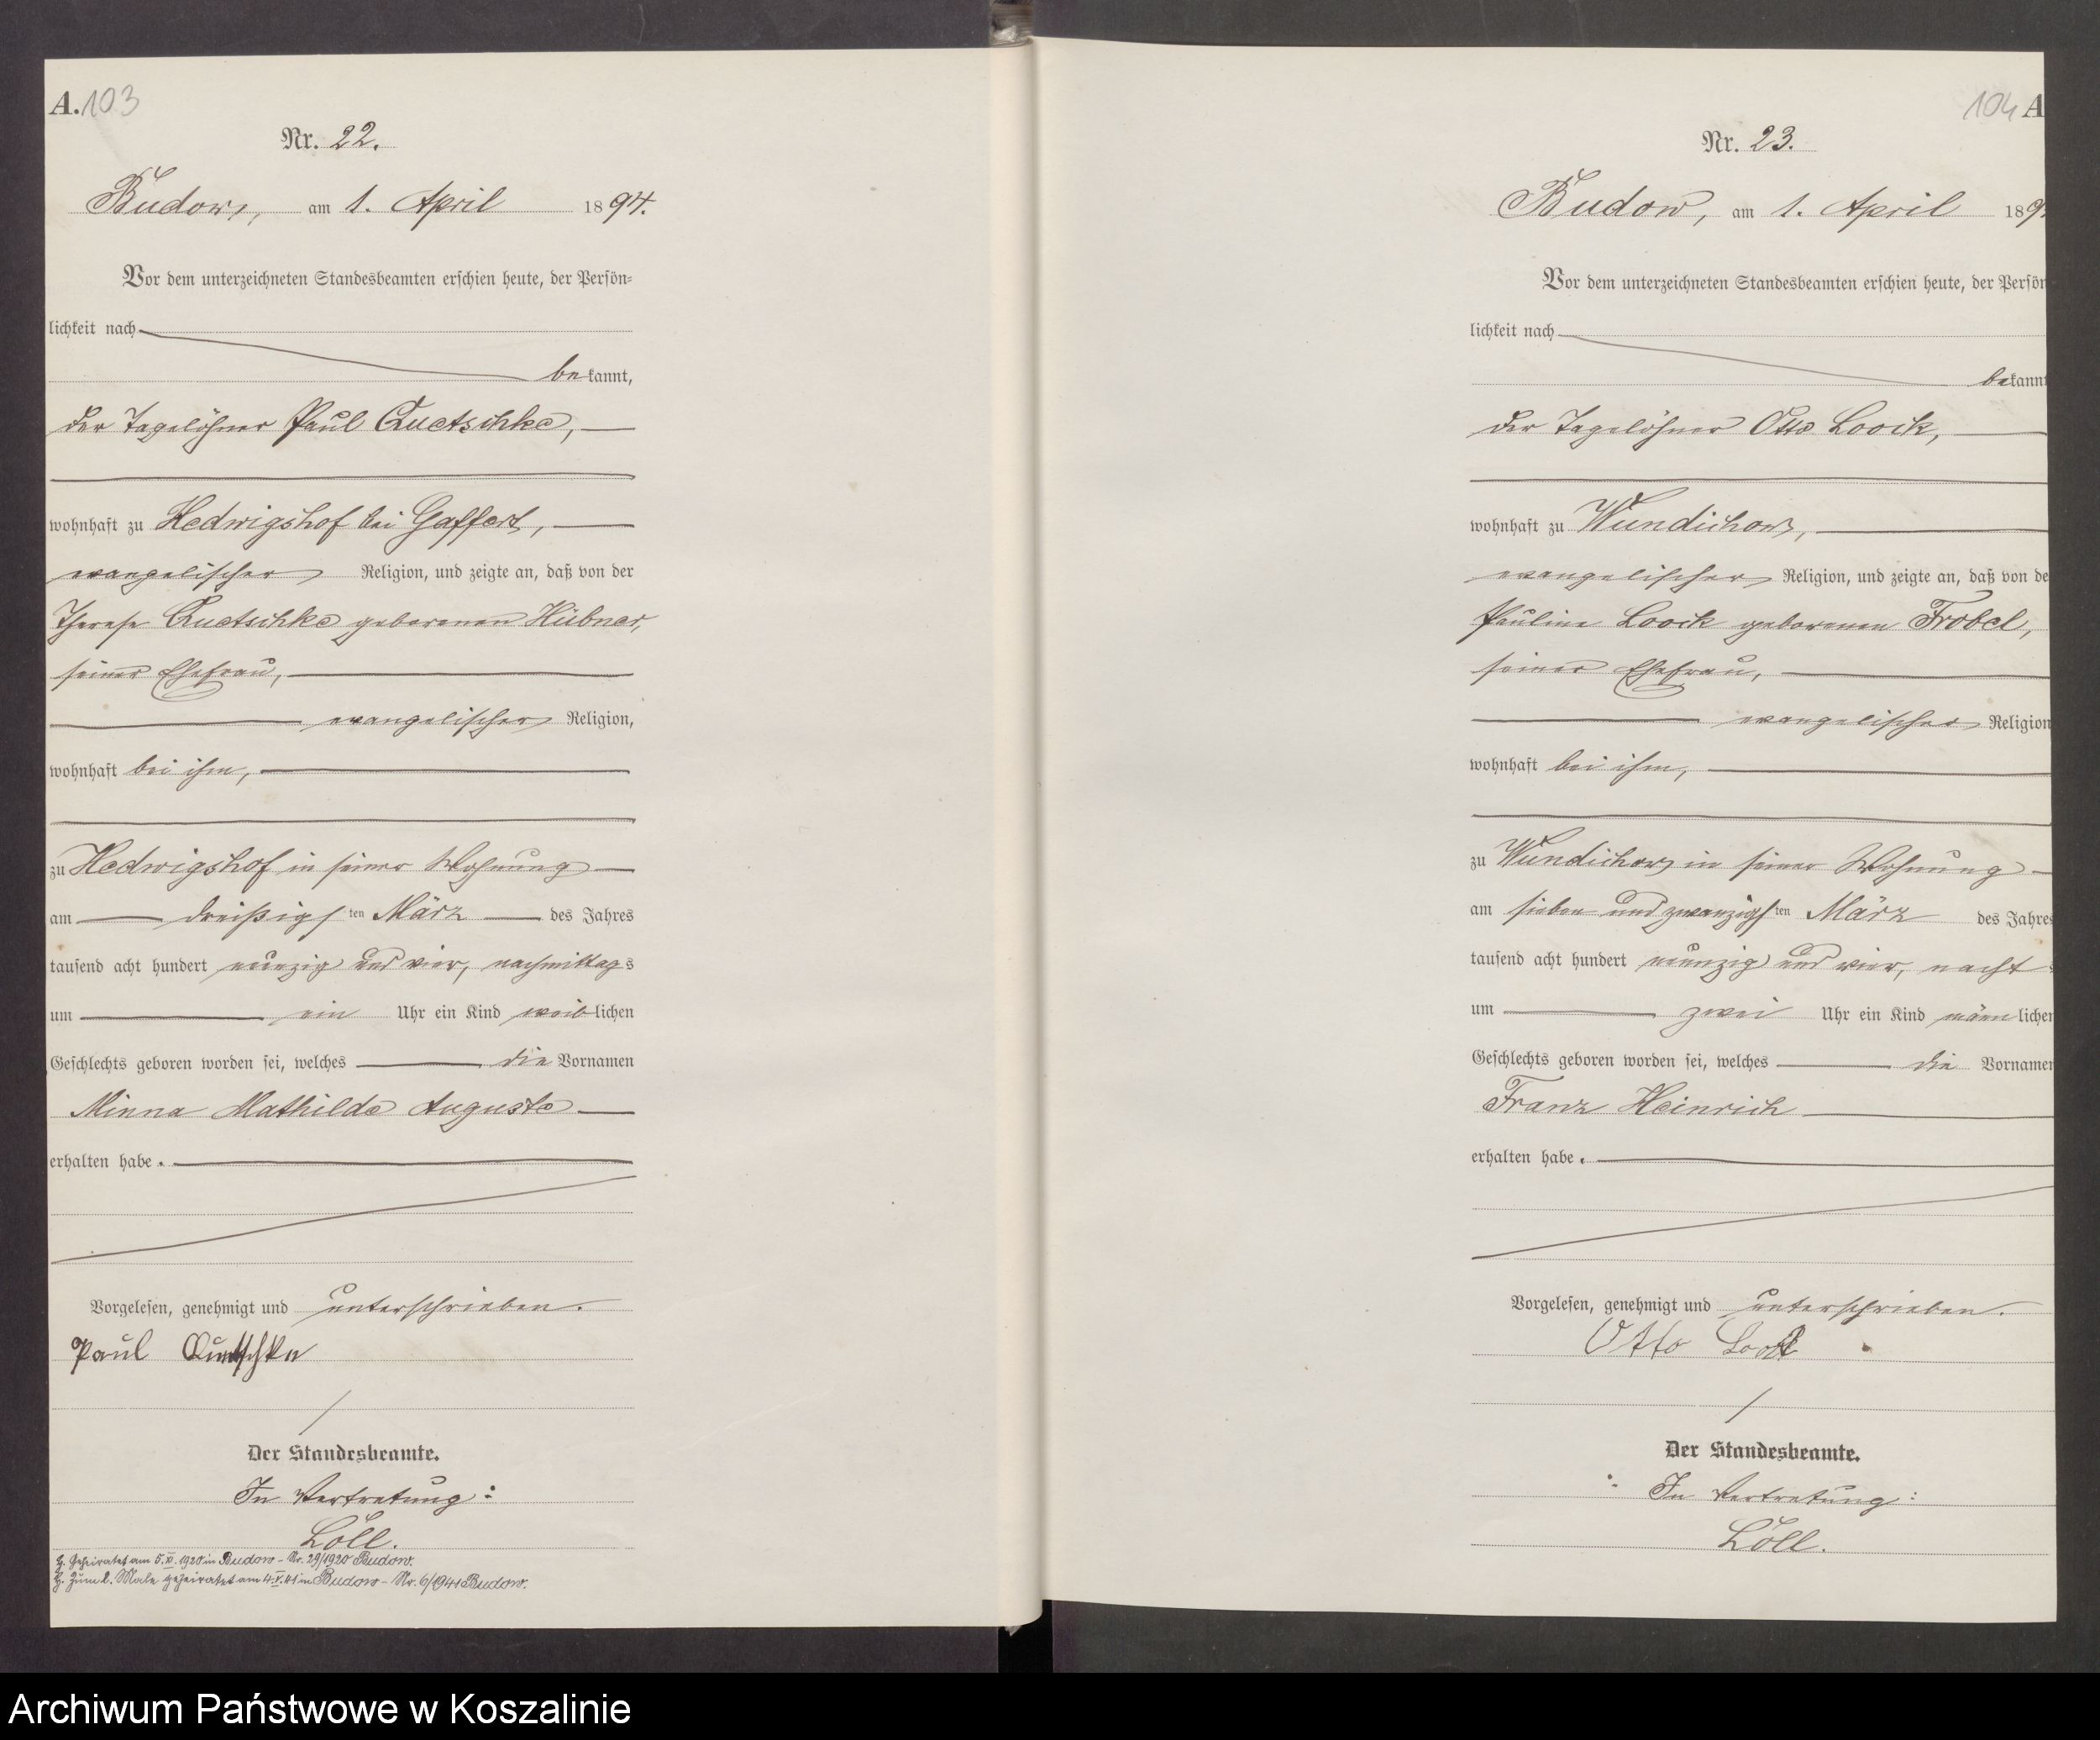 A. 103
Nr. 22.
Budow, am 1. April 1894.
Vor dem unterzeichneten Standesbeamten erschien heute, der Persön-
lichkeit nach
bekannt,
der Tagelöhner Paul Quetschke,
wohnhaft zu Hedwigshof bei Gaffert,
evangelischer Religion, und zeigte an, daß von der
Therese Quetschke geborenen Hübner,
seiner Ehefrau,
evangelischer Religion,
wohnhaft bei ihm,
zu Hedwigshof in seiner Wohnung
am dreißigsten März des Jahres
tausend acht hundert neunzig und vier, nachmittags
um ein Uhr ein Kind weiblichen
Geschlechts geboren worden sei, welches die Vornamen
Minna Mathilde Auguste
erhalten habe.
Vorgelesen, genehmigt und unterschrieben.
Paul Quetschke
Der Standesbeamte.
In Vertretung:
Löll.
Geheiratet am 5.XI.1920 in Budow - Nr. 29/1920 Budow.
Zum 2. Male geheiratet am 4.V.41 in Budow - Nr. 6/1941 Budow.
104 A
Nr. 23.
Budow, am 1. April 189
Vor dem unterzeichneten Standesbeamten erschien heute, der Persön
lichkeit nach
bekannt
der Tagelöhner Otto Loock,
wohnhaft zu Wundichow,
evangelischer Religion, und zeigte an, daß von de
Pauline Loock geborenen Frobel,
seiner Ehefrau,
evangelischer Religion
wohnhaft bei ihm,
zu Wundichow in seiner Wohnung
am sieben und zwanzigsten März des Jahres
tausend acht hundert neunzig und vier, nacht
um zwei Uhr ein Kind männlichen
Geschlechts geboren worden sei, welches die Vornamen
Franz Heinrich
erhalten habe.
Vorgelesen, genehmigt und unterschrieben.
Otto Loock
Der Standesbeamte.
In Vertretung:
Löll.
Archiwum Państwowe w Koszalinie